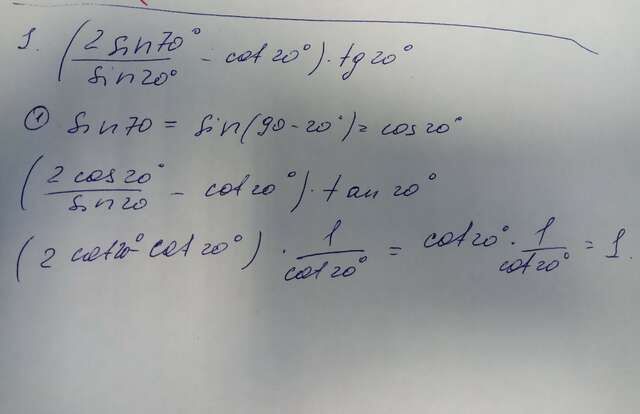 1. (2 sin70° / sin20° - cot20°) · tg20°
① sin70 = sin(90-20°) = cos20°
(2 cos20° / sin20 - cot20°) · tan20°
(2 cot20° - cot20°) · 1 / cot20° = cot20° · 1 / cot20° = 1.